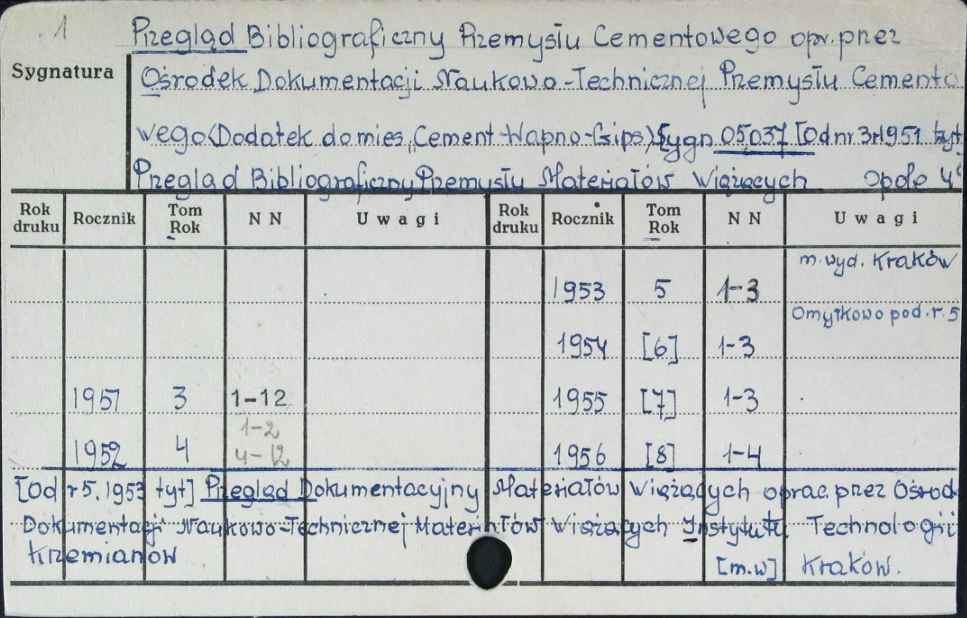 1
Przegląd Bibliograficzny Przemysłu Cementowego opr. przez
Sygnatura
Ośrodek Dokumentacji Naukowo-Technicznej Przemysłu Cemento
wego (Dodatek do mies. "Cement-Wapno-Gips") Sygn 05.037 [Od nr 3 r 1951 tyt
Przegląd Bibliograficzny Przemysłu Materiałów Wiążących Opole 4°
Rok druku Rocznik Tom Rok N N Uwagi Rok druku Rocznik Tom Rok N N Uwagi
m. wyd. Kraków
1953 5 1-3
Omyłkowo pod. r. 5
1954 [6] 1-3
1951 3 1-12 1955 [7] 1-3
1-2
1952 4 4-12 1956 [8] 1-4
[Od r 5. 1953 tyt] Przegląd Dokumentacyjny Materiałów Wiążących oprac. przez Ośrod
Dokumentacji Naukowo-Technicznej Materiałów Wiążących Instytutu Technologii
Krzemianów
[m.w] Kraków.